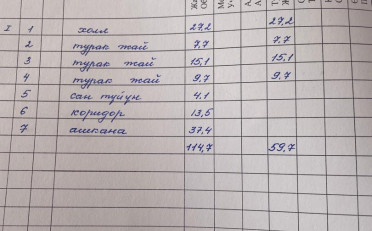 I 1 холл 27,2 27,2
2 турак жай 7,7 7,7
3 турак жай 15,1 15,1
4 турак жай 9,7 9,7
5 сан түйүн 4,1
6 коридор 13,5
7 ашкана 37,4
114,7 59,7